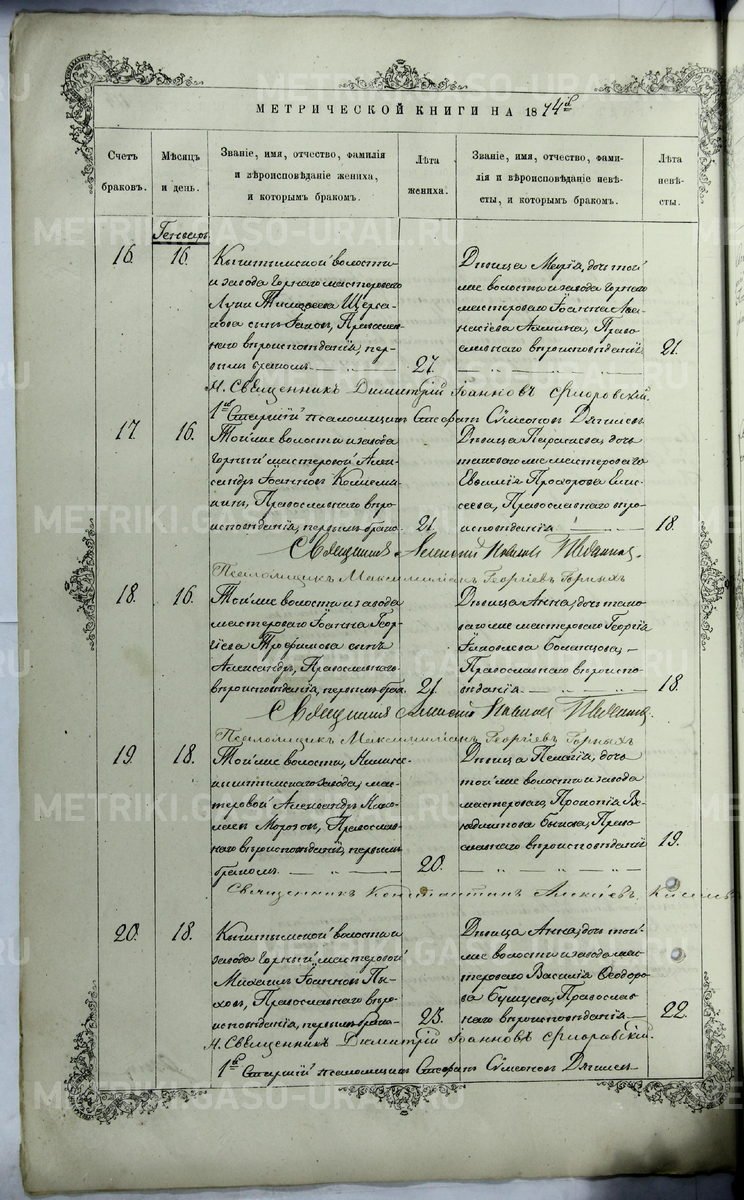 МЕТРИЧЕСКОЙ КНИГИ НА 1874й
Счетъ браковъ.
Мѣсяцъ и день.
Званіе, имя, отчество, фамилія
и вѣроисповѣданіе жениха,
и которымъ бракомъ.
Лѣта жениха.
Званіе, имя, отчество, фами-
лія и вѣроисповѣданіе невѣ-
сты, и которымъ бракомъ.
Лѣта невѣ-
сты.
Генварь
16. 16.
Кыштымской волости
и завода горнаго мастероваго
Луки Тимофеева Щерба-
кова сынъ Іаковъ, Православ-
наго вѣроисповѣданія, пер-
вымъ бракомъ 27.
Дѣвица Марія, дочь той
же волости и завода горнаго
мастероваго Іоанна Афа-
насіева, Право-
славнаго вѣроисповѣданія 21.
Священникъ Димитрій Іоанновъ Флоровскій.
1й Старшій псаломщикъ Сумеоновъ
17. 16.
Той же волости и завода
горный мастеровой Алек-
сандръ Іоанновъ
Православнаго вѣро-
исповѣданія, первымъ брако- 21.
Дѣвица Параскева, дочь
таковаго же мастероваго
Евѳимія Прохорова Ели-
сеева, Православнаго вѣро-
исповѣданія 18.
Священникъ Алексій
Псаломщикъ Максимиліанъ Георгіевъ Горныхъ
18. 16.
Той же волости и завода
мастероваго Іоанна Геор-
гіева Трофимова сынъ
Александръ, Православнаго
вѣроисповѣданія, первымъ брак. 21.
Дѣвица Анна, дочь тако-
ваго же мастероваго Георгія
Іаковлева
Православнаго вѣроиспо-
вѣданія 18.
Священникъ Алексій
Псаломщикъ Максимиліанъ Георгіевъ Горныхъ
19. 18.
Той же волости, Нижне-
кыштымскаго завода, мас-
теровой Александръ Нико-
лаевъ Морозовъ, Православ-
наго вѣроисповѣданія, первымъ
бракомъ 20.
Дѣвица Пелагія, дочь
той же волости и завода
мастероваго, Прокопія
Быкова, Право-
славнаго вѣроисповѣданія 19.
Священникъ Константинъ Алексіевъ
20. 18.
Кыштымской волости и
завода горный мастеровой
Михаилъ Іоанновъ Пы-
ховъ, Православнаго вѣро-
исповѣданія, первымъ брако- 23.
Дѣвица Анна, дочь той
же волости и завода мас-
тероваго Василія Ѳеодоро-
ва Бунцева, Православ-
наго вѣроисповѣданія 22.
Священникъ Димитрій Іоанновъ Флоровскій.
1й Старшій псаломщикъ Сумеоновъ
METRIKI.GASO-URAL.RU